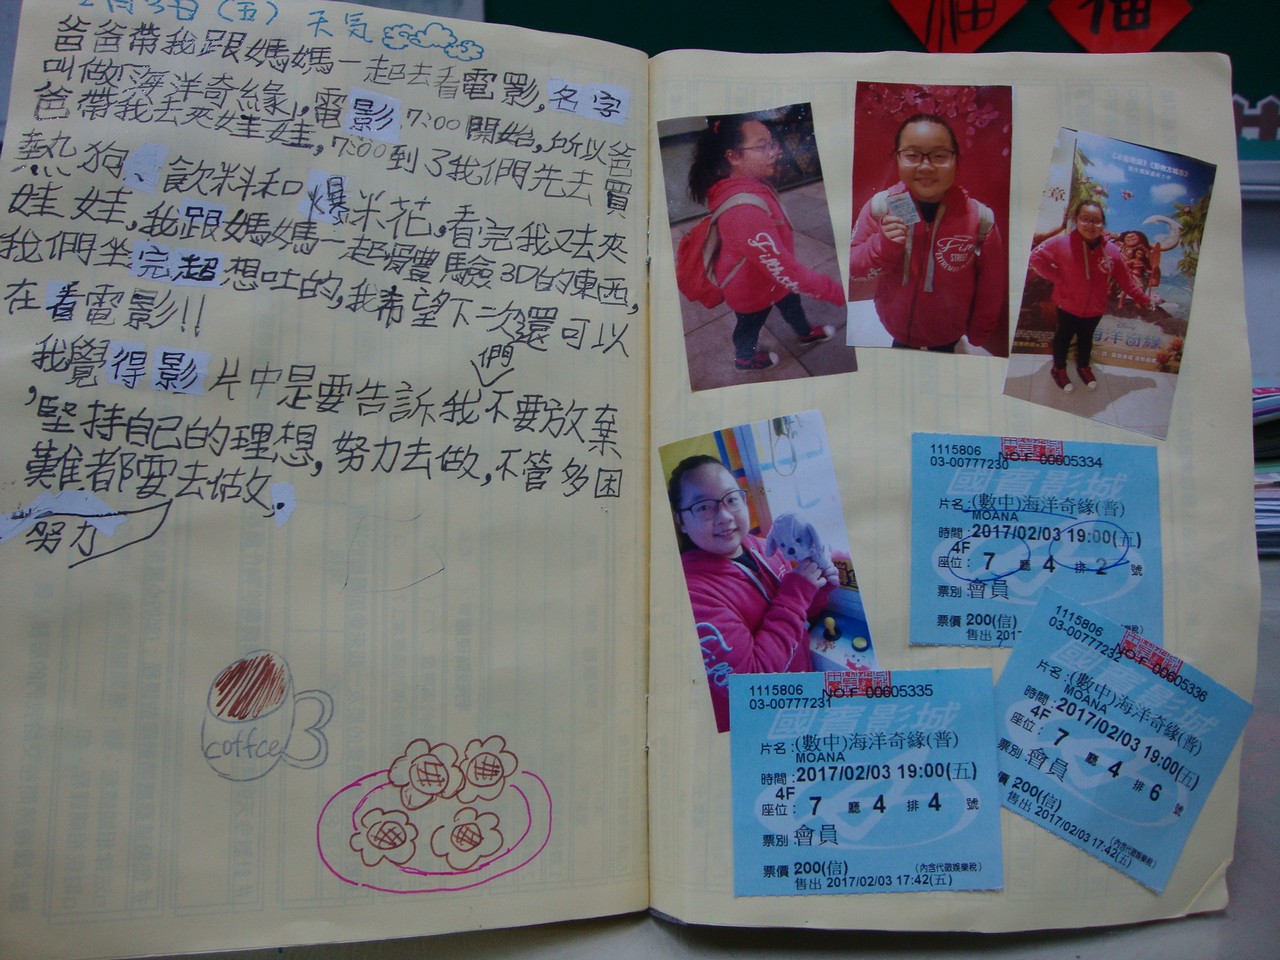 2月3日(五) 天氣
爸爸帶我跟媽媽一起去看電影,名字
叫做「海洋奇緣」,電影7:00開始,所以爸
爸帶我去夾娃娃,7:00到了我們先去買
熱狗、飲料和爆米花,看完我又去夾
娃娃,我跟媽媽一起體驗3D的東西,
我們坐完超想吐的,我希望下次還可以
在看電影!!
我覺得影片中是要告訴我們不要放棄
,堅持自己的理想,努力去做,不管多困
難都要去做,
努力
coffce
福
福
海洋奇緣
1115806
03-00777230 NO.F 00605334
國賓影城
片名:(數中)海洋奇緣(普)
MOANA
時間:2017/02/03 19:00(五)
4F
座位:7 廳 4 排 2 號
票別:會員
票價 200(信)
售出 2017
1115806
03-00777231 NO.F 00605335
國賓影城
片名:(數中)海洋奇緣(普)
MOANA
時間:2017/02/03 19:00(五)
4F
座位:7 廳 4 排 4 號
票別:會員
票價 200(信) (內含代徵娛樂稅)
售出 2017/02/03 17:42(五)
1115806
03-00777232 NO.F 00605336
國賓影城
片名:(數中)海洋奇緣(普)
MOANA
時間:2017/02/03 19:00(五)
4F
座位:7 廳 4 排 6 號
票別:會員
200(信) (內含代徵娛樂稅)
售出 2017/02/03 17:42(五)